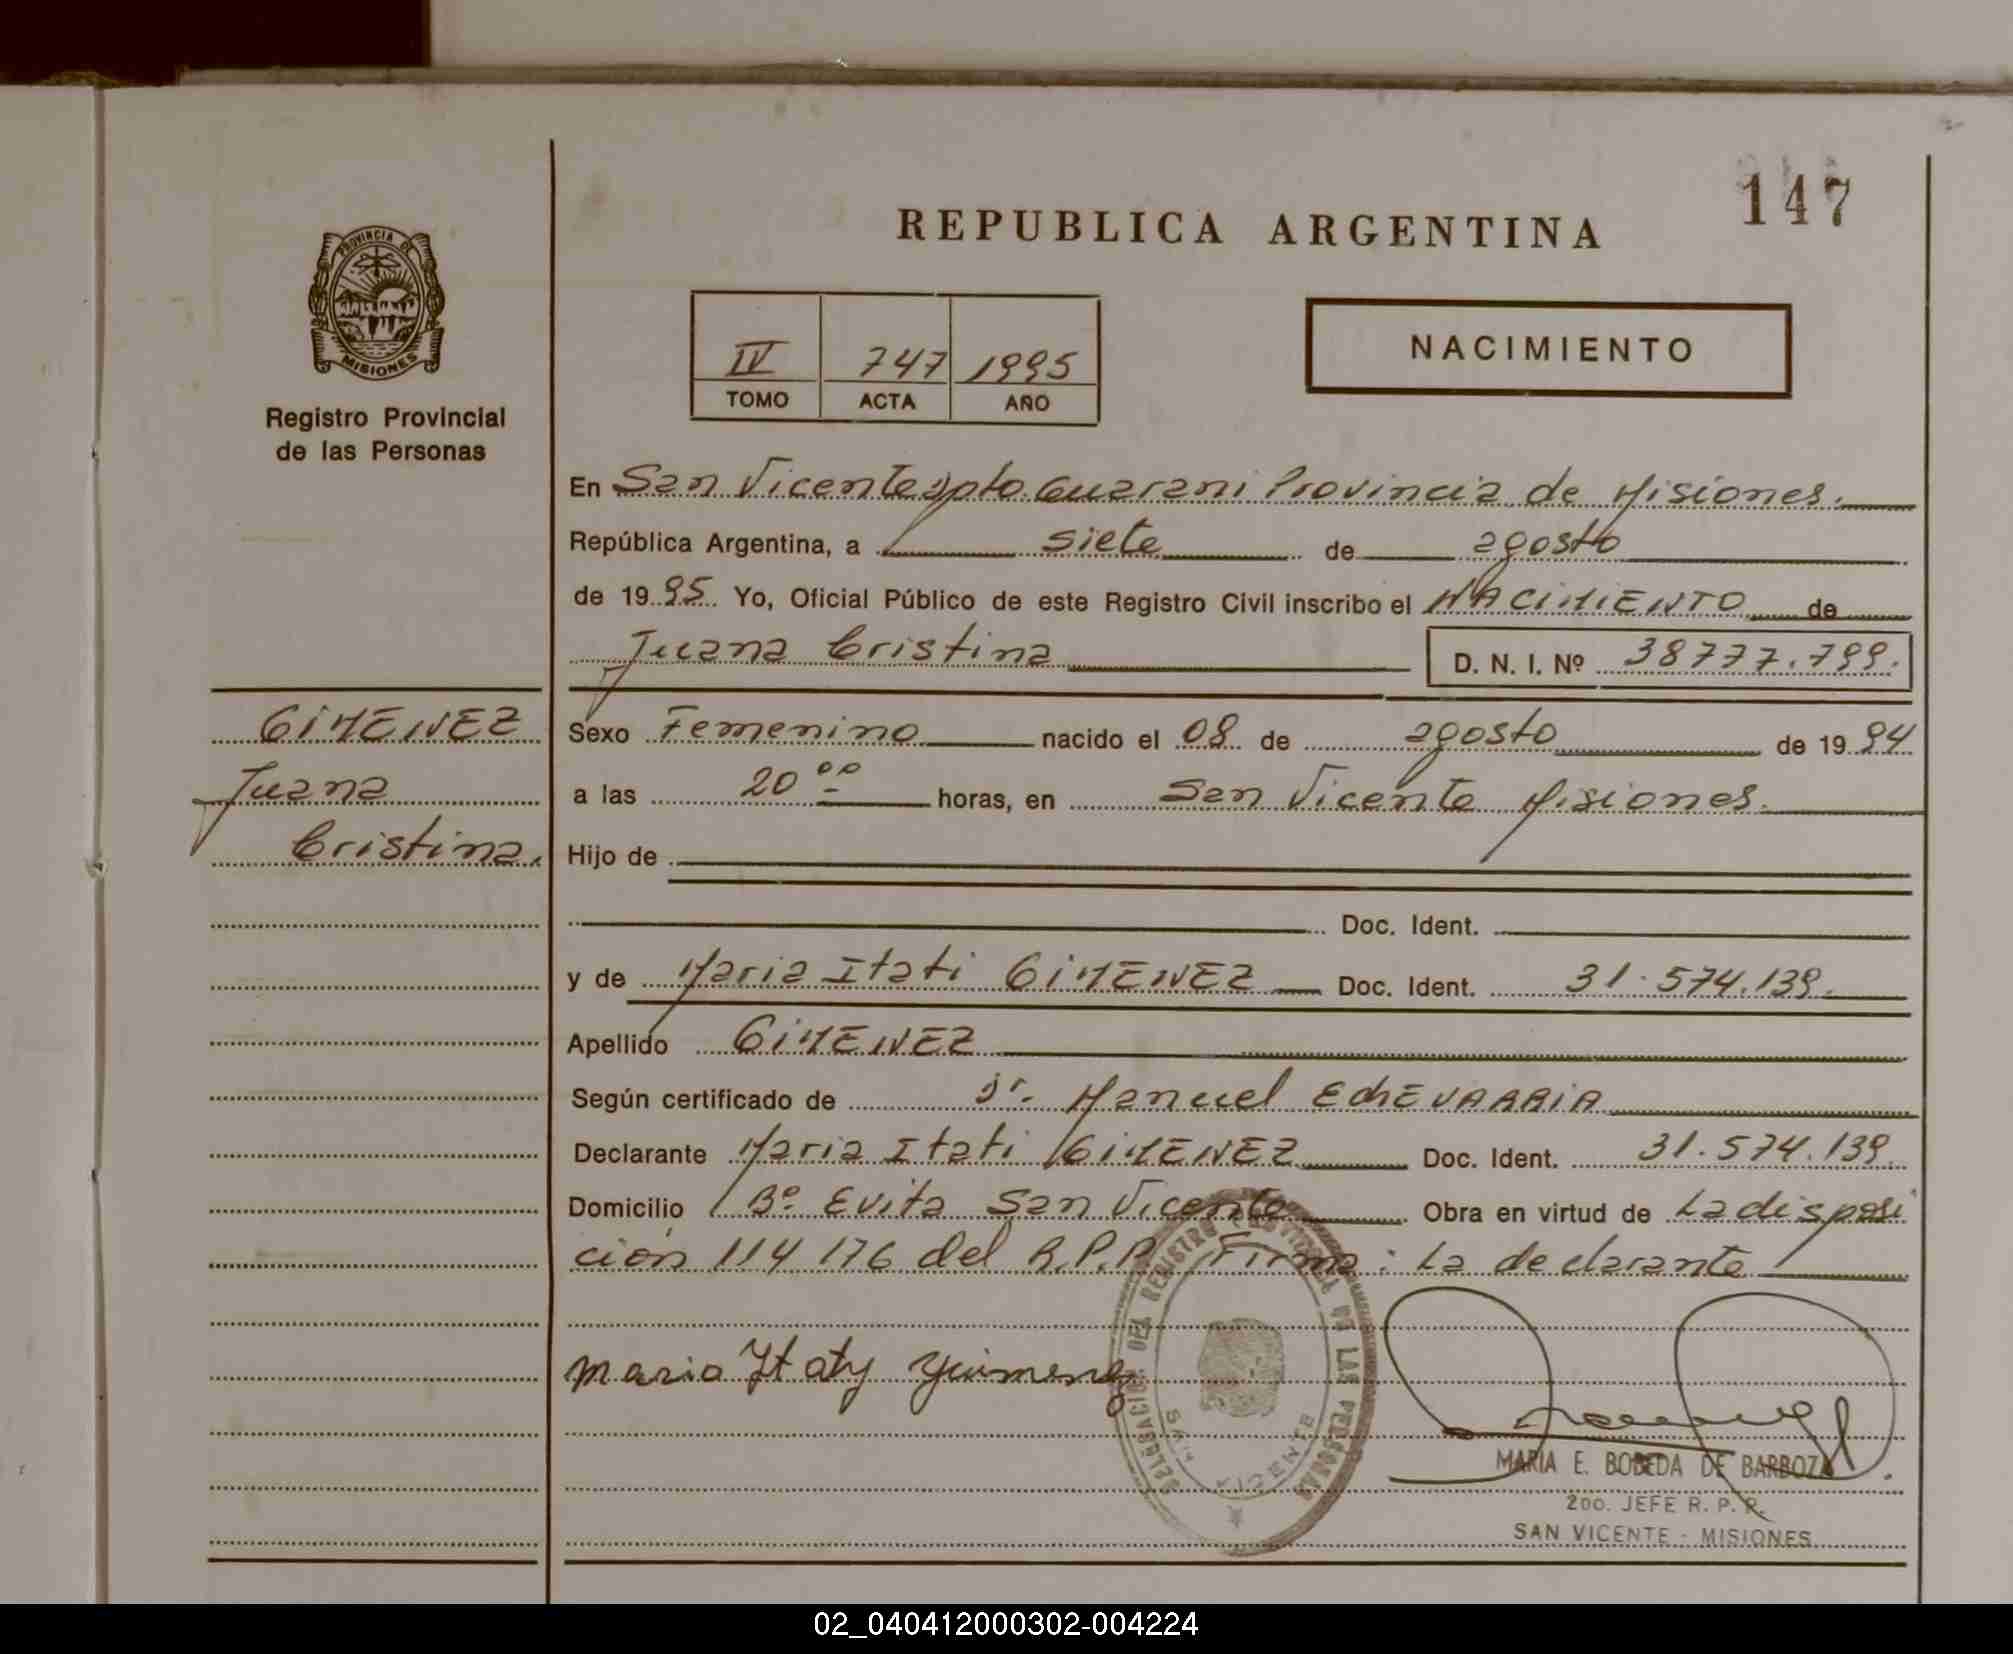 147
REPUBLICA ARGENTINA
PROVINCIA DE
MISIONES
Registro Provincial
de las Personas
IV 747 1995
TOMO ACTA AÑO
NACIMIENTO
En San Vicente Dpto. Guarani Provincia de Misiones.
República Argentina, a siete de agosto
de 1995 Yo, Oficial Público de este Registro Civil inscribo el NACIMIENTO de
Juana Cristina D. N. I. Nº 38777.799.
GIMENEZ
Juana
Cristina.
Sexo Femenino nacido el 08 de agosto de 1994
a las 20 00 horas, en San Vicente Misiones.
Hijo de
Doc. Ident.
y de Maria Itati GIMENEZ Doc. Ident. 31.574.139.
Apellido GIMENEZ
Según certificado de Dr. Manuel EchEVARRIA
Declarante Maria Itati GIMENEZ Doc. Ident. 31.574.139.
Domicilio Bº Evita San Vicente Obra en virtud de La disposi
ción 114 176 del R.P.P. Firma: La declarante
Maria Itaty Yimenez
DELEGACION DEL REGISTRO DE LAS PERSONAS
SAN VICENTE
MARIA E. BOBEDA DE BARBOZA
2DO. JEFE R. P. P.
SAN VICENTE - MISIONES
02_040412000302-004224